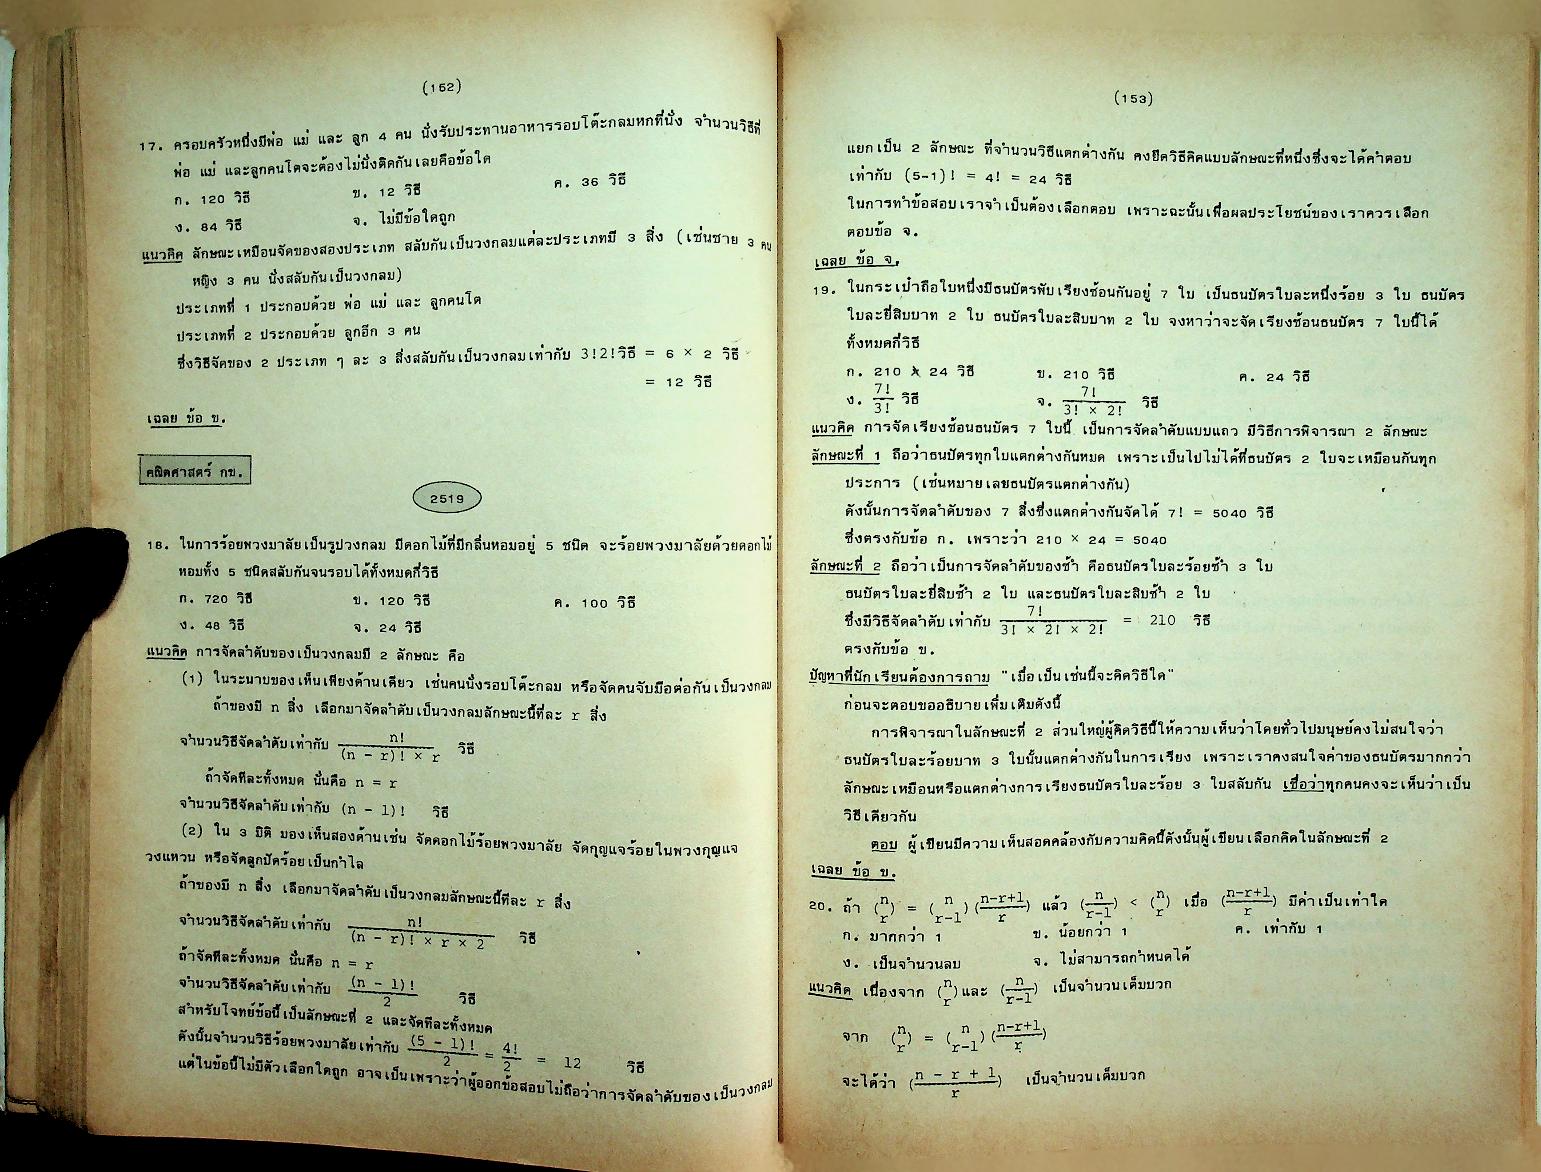 (162)
17. ครอบครัวหนึ่งมีพ่อ แม่ และ ลูก 4 คน นั่งรับประทานอาหารรอบโต๊ะกลมหกที่นั่ง จำนวนวิธีที่
พ่อ แม่ และลูกคนโตจะต้องไม่นั่งติดกันเลยคือข้อใด
ก. 120 วิธี ข. 12 วิธี ค. 36 วิธี
ง. 84 วิธี จ. ไม่มีข้อใดถูก
แนวคิด ลักษณะเหมือนจัดของสองประเภท สลับกันเป็นวงกลมแต่ละประเภทมี 3 สิ่ง (เช่นชาย 3 คน
หญิง 3 คน นั่งสลับกันเป็นวงกลม)
ประเภทที่ 1 ประกอบด้วย พ่อ แม่ และ ลูกคนโต
ประเภทที่ 2 ประกอบด้วย ลูกอีก 3 คน
ซึ่งวิธีจัดของ 2 ประเภท ๆ ละ 3 สิ่งสลับกันเป็นวงกลมเท่ากับ 3!2!วิธี = 6 × 2 วิธี
= 12 วิธี
เฉลย ข้อ ข.
คณิตศาสตร์ กข.
2519
18. ในการร้อยพวงมาลัยเป็นรูปวงกลม มีดอกไม้ที่มีกลิ่นหอมอยู่ 5 ชนิด จะร้อยพวงมาลัยด้วยดอกไม้
หอมทั้ง 5 ชนิดสลับกันจนรอบได้ทั้งหมดกี่วิธี
ก. 720 วิธี ข. 120 วิธี ค. 100 วิธี
ง. 48 วิธี จ. 24 วิธี
แนวคิด การจัดลำดับของเป็นวงกลมมี 2 ลักษณะ คือ
(1) ในระนาบมองเห็นเพียงด้านเดียว เช่นคนนั่งรอบโต๊ะกลม หรือจัดคนจับมือต่อกันเป็นวงกลม
ถ้าของมี n สิ่ง เลือกมาจัดลำดับเป็นวงกลมลักษณะนี้ทีละ r สิ่ง
จำนวนวิธีจัดลำดับเท่ากับ n! / (n - r)! × r วิธี
ถ้าจัดทีละทั้งหมด นั่นคือ n = r
จำนวนวิธีจัดลำดับเท่ากับ (n - 1)! วิธี
(2) ใน 3 มิติ มองเห็นสองด้านเช่น จัดดอกไม้ร้อยพวงมาลัย จัดกุญแจร้อยในพวงกุญแจ
วงแหวน หรือจัดลูกปัดร้อยเป็นกำไล
ถ้าของมี n สิ่ง เลือกมาจัดลำดับเป็นวงกลมลักษณะนี้ทีละ r สิ่ง
จำนวนวิธีจัดลำดับเท่ากับ n! / (n - r)! × r × 2 วิธี
ถ้าจัดทีละทั้งหมด นั่นคือ n = r
จำนวนวิธีจัดลำดับเท่ากับ (n - 1)! / 2 วิธี
สำหรับโจทย์ข้อนี้เป็นลักษณะที่ 2 และจัดทีละทั้งหมด
ดังนั้นจำนวนวิธีร้อยพวงมาลัยเท่ากับ (5 - 1)! / 2 = 4! / 2 = 12 วิธี
แต่ในข้อนี้ไม่มีตัวเลือกใดถูก อาจเป็นเพราะว่าผู้ออกข้อสอบไม่ถือว่าการจัดลำดับของเป็นวงกลม
(153)
แยกเป็น 2 ลักษณะ ที่จำนวนวิธีแตกต่างกัน คงยึดวิธีคิดแบบลักษณะที่หนึ่งซึ่งจะได้คำตอบ
เท่ากับ (5-1)! = 4! = 24 วิธี
ในการทำข้อสอบเราจำเป็นต้องเลือกตอบ เพราะฉะนั้นเพื่อผลประโยชน์ของเราควรเลือก
ตอบข้อ จ.
เฉลย ข้อ จ.
19. ในกระเป๋าถือใบหนึ่งมีธนบัตรพับเรียงซ้อนกันอยู่ 7 ใบ เป็นธนบัตรใบละหนึ่งร้อย 3 ใบ ธนบัตร
ใบละยี่สิบบาท 2 ใบ ธนบัตรใบละสิบบาท 2 ใบ จงหาว่าจะจัดเรียงซ้อนธนบัตร 7 ใบนี้ได้
ทั้งหมดกี่วิธี
ก. 210 × 24 วิธี ข. 210 วิธี ค. 24 วิธี
ง. 7! / 3! วิธี จ. 7! / 3! × 2! วิธี
แนวคิด การจัดเรียงซ้อนธนบัตร 7 ใบนี้ เป็นการจัดลำดับแบบแถว มีวิธีการพิจารณา 2 ลักษณะ
ลักษณะที่ 1 ถือว่าธนบัตรทุกใบแตกต่างกันหมด เพราะเป็นไปไม่ได้ที่ธนบัตร 2 ใบจะเหมือนกันทุก
ประการ (เช่นหมายเลขธนบัตรแตกต่างกัน)
ดังนั้นการจัดลำดับของ 7 สิ่งซึ่งแตกต่างกันจัดได้ 7! = 5040 วิธี
ซึ่งตรงกับข้อ ก. เพราะว่า 210 × 24 = 5040
ลักษณะที่ 2 ถือว่าเป็นการจัดลำดับของซ้ำ คือธนบัตรใบละร้อยซ้ำ 3 ใบ
ธนบัตรใบละยี่สิบซ้ำ 2 ใบ และธนบัตรใบละสิบซ้ำ 2 ใบ
ซึ่งมีวิธีจัดลำดับเท่ากับ 7! / 3! × 2! × 2! = 210 วิธี
ตรงกับข้อ ข.
ปัญหาที่นักเรียนต้องการถาม "เมื่อเป็นเช่นนี้จะคิดวิธีใด"
ก่อนจะตอบขออธิบายเพิ่มเติมดังนี้
การพิจารณาในลักษณะที่ 2 ส่วนใหญ่ผู้คิดวิธีนี้ให้ความเห็นว่าโดยทั่วไปมนุษย์คงไม่สนใจว่า
ธนบัตรใบละร้อยบาท 3 ใบนั้นแตกต่างกันในการเรียง เพราะเราคงสนใจค่าของธนบัตรมากกว่า
ลักษณะเหมือนหรือแตกต่างการเรียงธนบัตรใบละร้อย 3 ใบสลับกัน เชื่อว่าทุกคนคงจะเห็นว่าเป็น
วิธีเดียวกัน
ตอบ ผู้เขียนมีความเห็นสอดคล้องกับความคิดนี้ดังนั้นผู้เขียนเลือกคิดในลักษณะที่ 2
เฉลย ข้อ ข.
20. ถ้า (n r) = (n r-1)(n-r+1 / r) แล้ว (n / r-1) < (n r) เมื่อ (n-r+1 / r) มีค่าเป็นเท่าใด
ก. มากกว่า 1 ข. น้อยกว่า 1 ค. เท่ากับ 1
ง. เป็นจำนวนลบ จ. ไม่สามารถกำหนดได้
แนวคิด เนื่องจาก (n r) และ (n / r-1) เป็นจำนวนเต็มบวก
จาก (n r) = (n r-1)(n-r+1 / r)
จะได้ว่า (n - r + 1 / r) เป็นจำนวนเต็มบวก